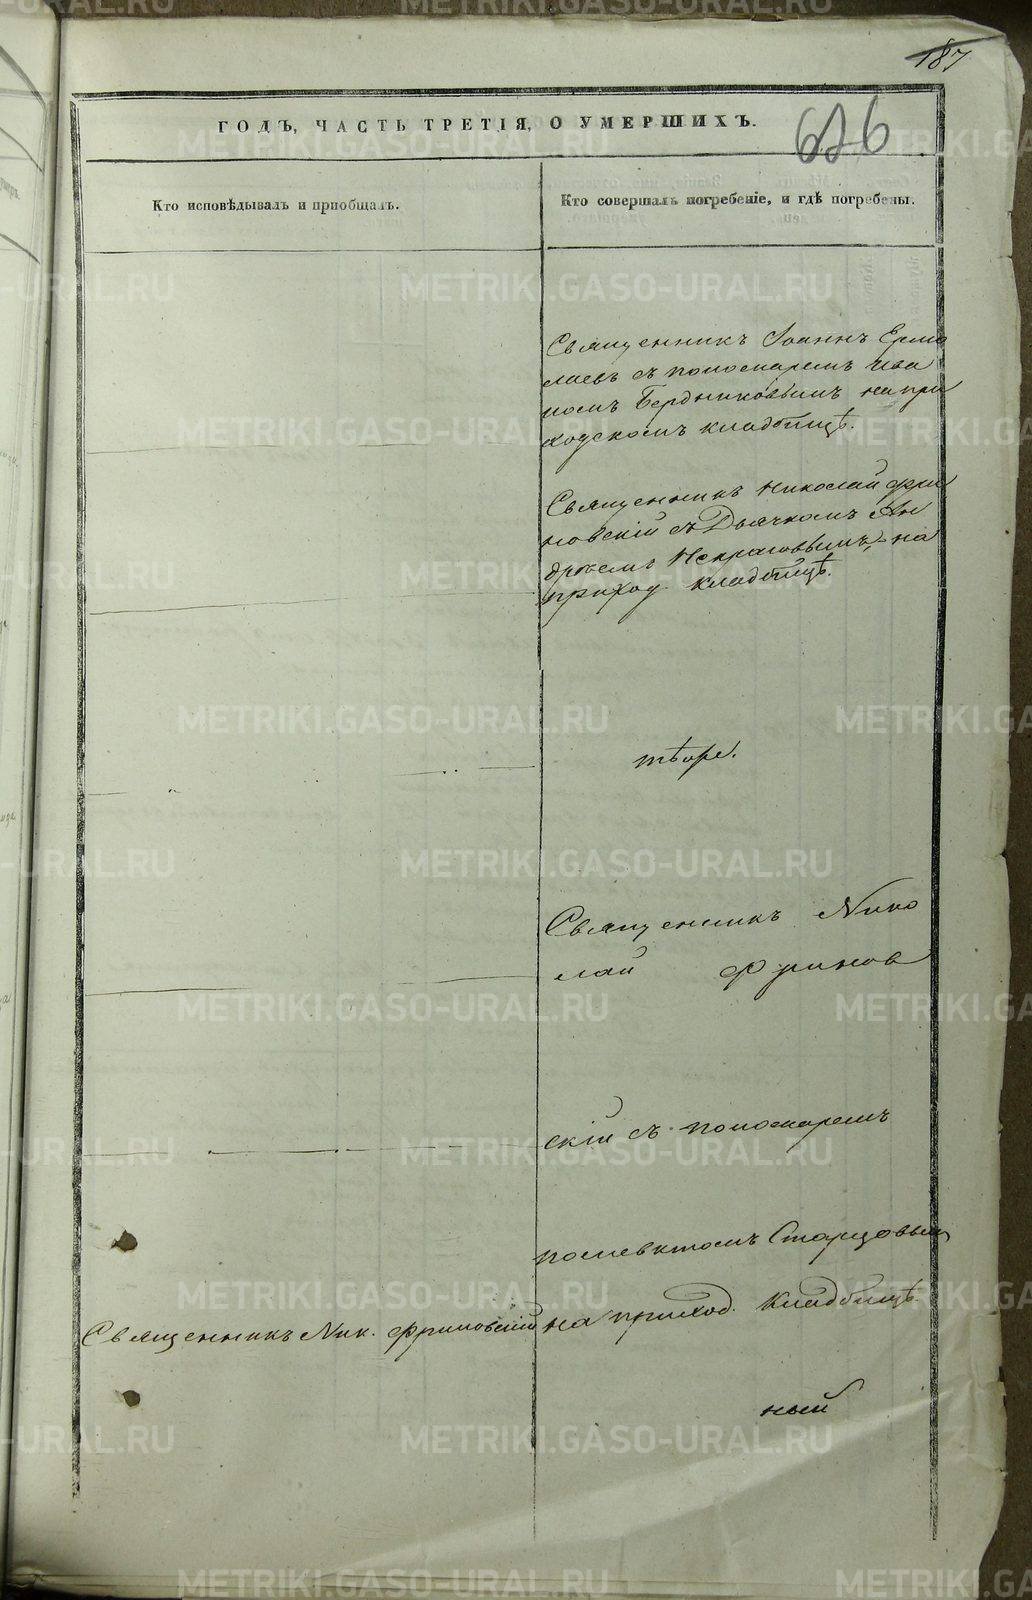 187
ГОДЪ, ЧАСТЬ ТРЕТІЯ, О УМЕРШИХЪ.
626
Кто исповѣдывалъ и пріобщалъ.
Кто совершалъ погребеніе, и гдѣ погребены.
Священникъ Іоаннъ Ермо
лаевъ съ пономаремъ Ива
номъ Бердниковымъ на при
ходскомъ кладбищѣ.
Священникъ Николай Фри
новскій съ Дьячкомъ Ан
дреемъ Некрасовымъ, на
приход кладбищѣ.
тѣже.
Священникъ Нико
лай Фринов
скій съ пономаремъ
Полиевктомъ Старцовымъ
на приход. кладбищѣ.
Священникъ Ник. Фриновскій
ный
METRIKI.GASO-URAL.RU